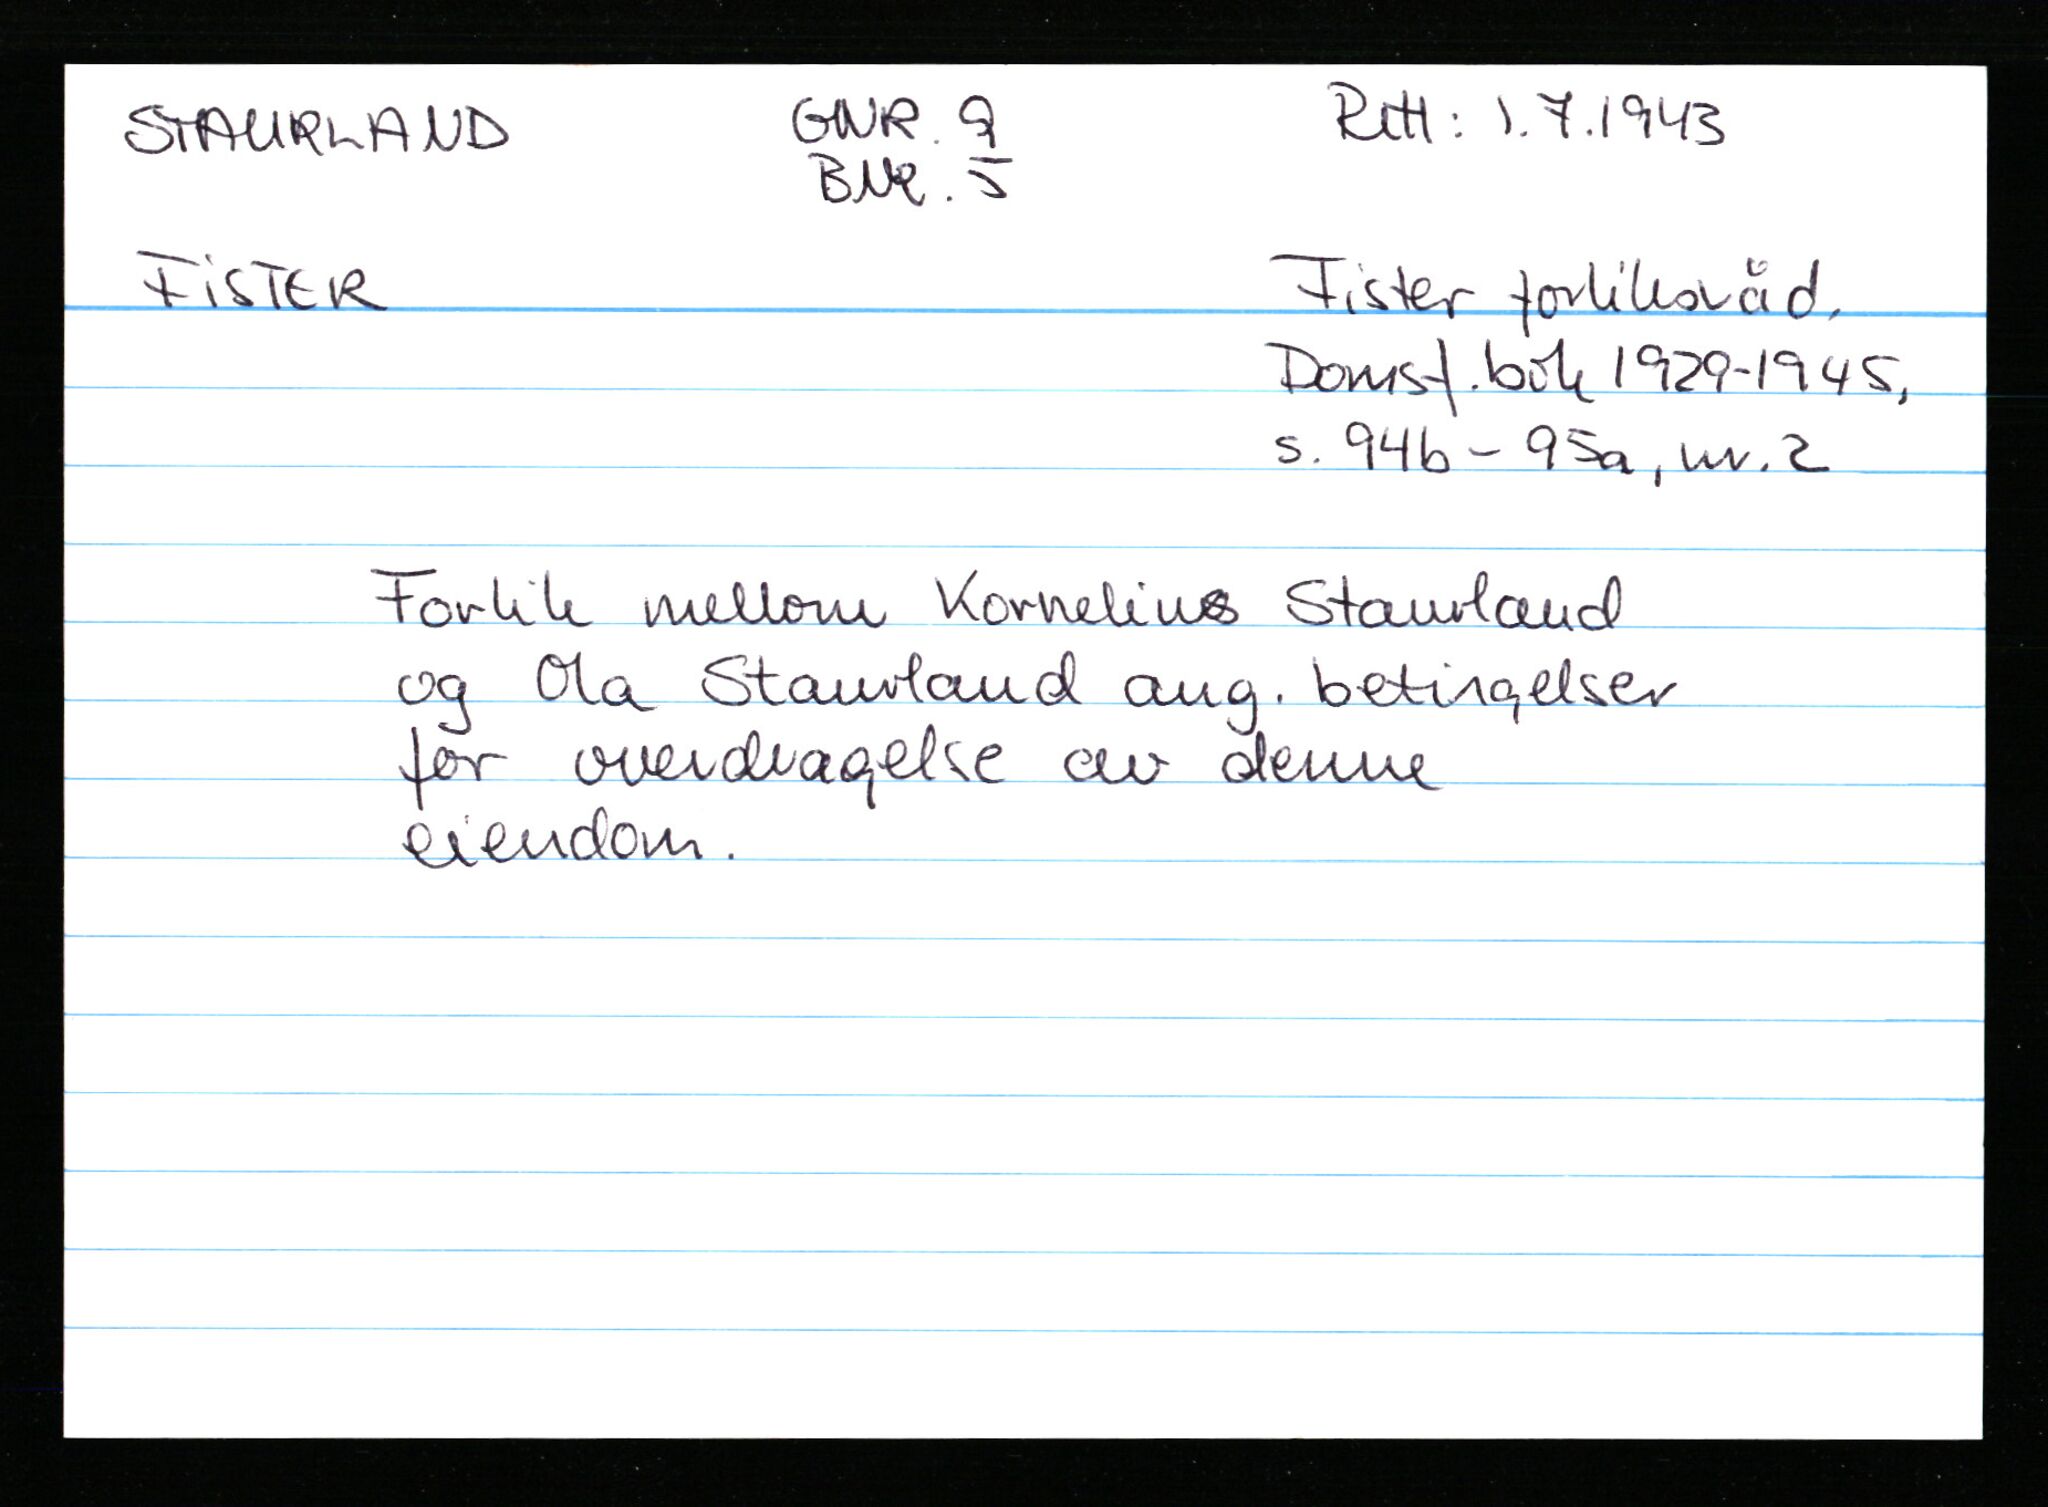 STAURLAND GNR. 9 Rett: 1.7.1943
BNR. 5
FISTER Fister forliksråd.
Domsf.bok 1929-1945,
s. 94b - 95a, nr. 2
Forlik mellom Kornelius Staurland
og Ola Staurland ang. betingelser
for overdragelse av denne
eiendom.